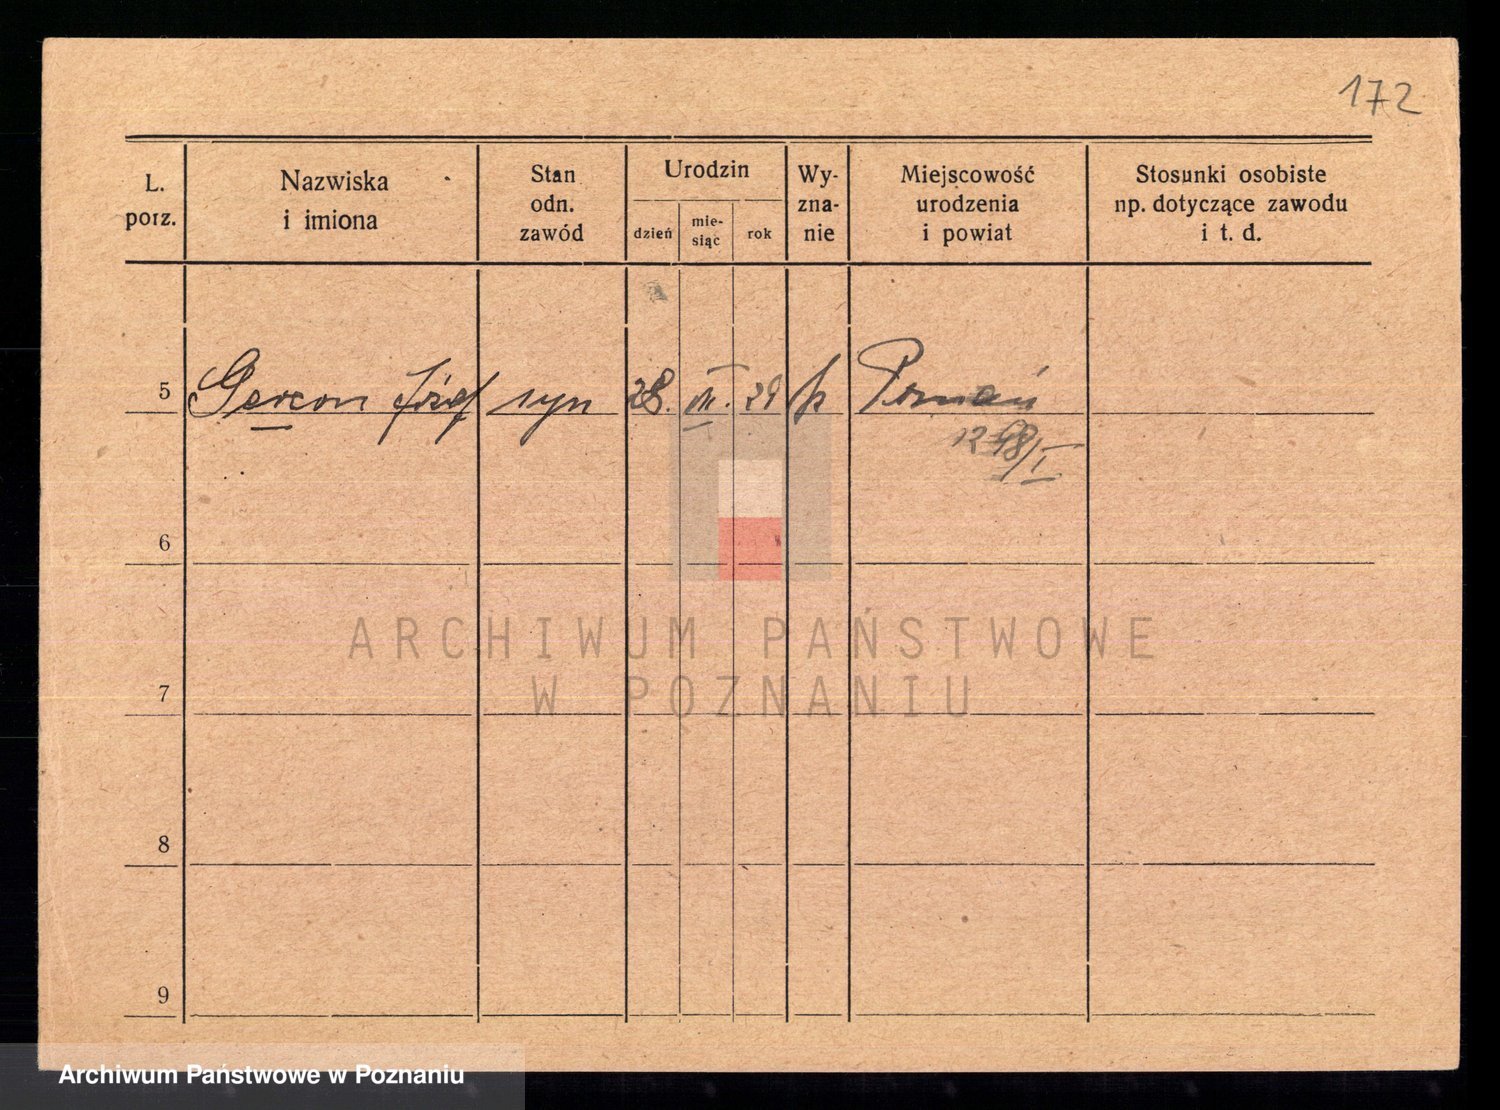 172
L. porz.
Nazwiska i imiona
Stan odn. zawód
Urodzin
dzień
mie- siąc
rok
Wy- zna- nie
Miejscowość urodzenia i powiat
Stosunki osobiste np. dotyczące zawodu i t. d.
5 Józef syn 28. III. 29 Poznań
/I
6
7
8
9
ARCHIWUM PAŃSTWOWE
W POZNANIU
Archiwum Państwowe w Poznaniu